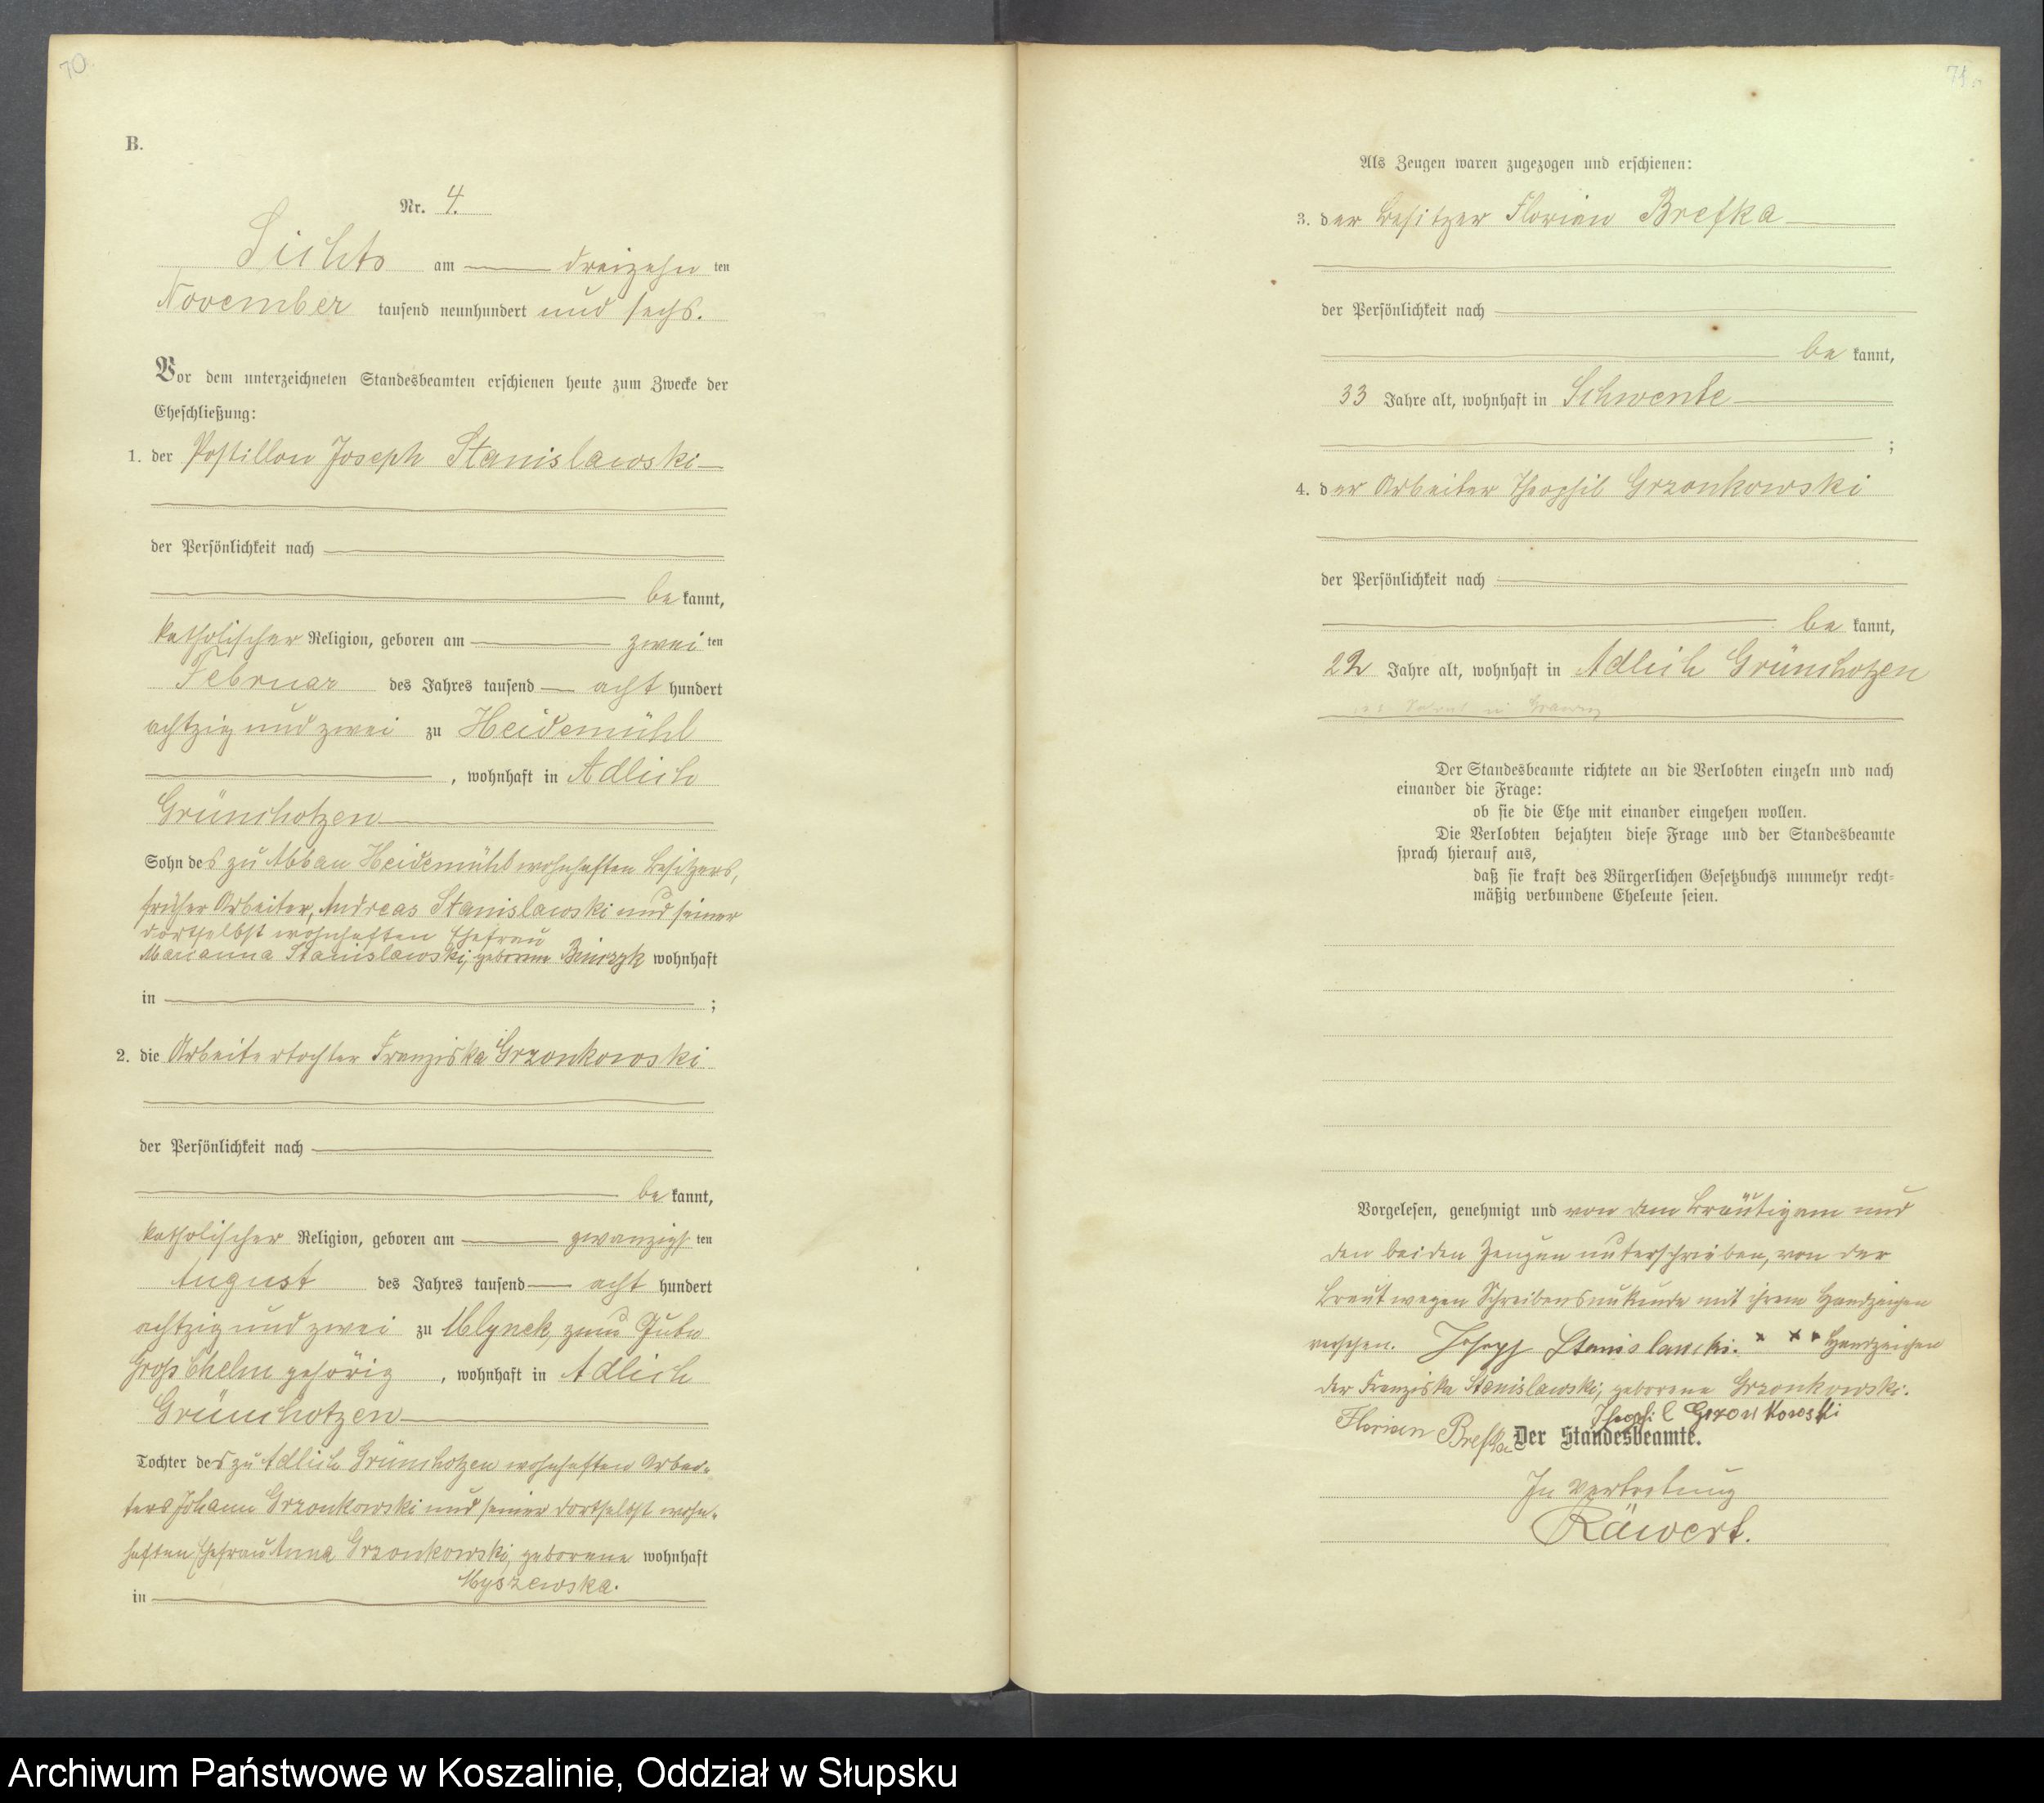 70.
B.
Nr. 4.
Lichts am dreizehn ten
November tausend neunhundert und sechs.
Vor dem unterzeichneten Standesbeamten erschienen heute zum Zwecke der
Eheschließung:
1. der Postillon Joseph Stanislawski
der Persönlichkeit nach
be kannt,
katholischer Religion, geboren am zwei ten
Februar des Jahres tausend acht hundert
achtzig und zwei zu Heidemühl
, wohnhaft in Adlich
Grünchotzen
Sohn des zu Abbau Heidemühl wohnhaften Besitzers,
früher Arbeiter, Andreas Stanislawski und seiner
dortselbst wohnhaften Ehefrau
Marianna Stanislawski, geborene wohnhaft
in ;
2. die Arbeitertochter Franziska Grzonkowski
der Persönlichkeit nach
be kannt,
katholischer Religion, geboren am zwanzigs ten
August des Jahres tausend acht hundert
achtzig und zwei zu Mlynek, zum Gute
Groß Chelm gehörig , wohnhaft in Adlich
Grünchotzen
Tochter des zu Adlich Grünchotzen wohnhaften Arbei-
ters Johann Grzonkowski und seiner dortselbst wohn-
haften Ehefrau Anna Grzonkowski, geborene wohnhaft
Myszewska.
in
Als Zeugen waren zugezogen und erschienen:
3. der Besitzer Florian Brefka
der Persönlichkeit nach
be kannt,
33 Jahre alt, wohnhaft in Schwente
;
4. der Arbeiter Theophil Grzonkowski
der Persönlichkeit nach
be kannt,
22 Jahre alt, wohnhaft in Adlich Grünchotzen
Der Standesbeamte richtete an die Verlobten einzeln und nach
einander die Frage:
ob sie die Ehe mit einander eingehen wollen.
Die Verlobten bejahten diese Frage und der Standesbeamte
sprach hierauf aus,
daß sie kraft des Bürgerlichen Gesetzbuchs nunmehr recht-
mäßig verbundene Eheleute seien.
Vorgelesen, genehmigt und von dem Bräutigam und
den beiden Zeugen unterschrieben, von der
Braut wegen Schreibensunkunde mit ihrem Handzeichen
versehen. Joseph Stanislawski. x x x Handzeichen
der Franziska Stanislawski, geborene Grzonkowski.
Florian Brefka Theophil Grzonkowski
Der Standesbeamte.
In Vertretung
Räwert.
Archiwum Państwowe w Koszalinie, Oddział w Słupsku